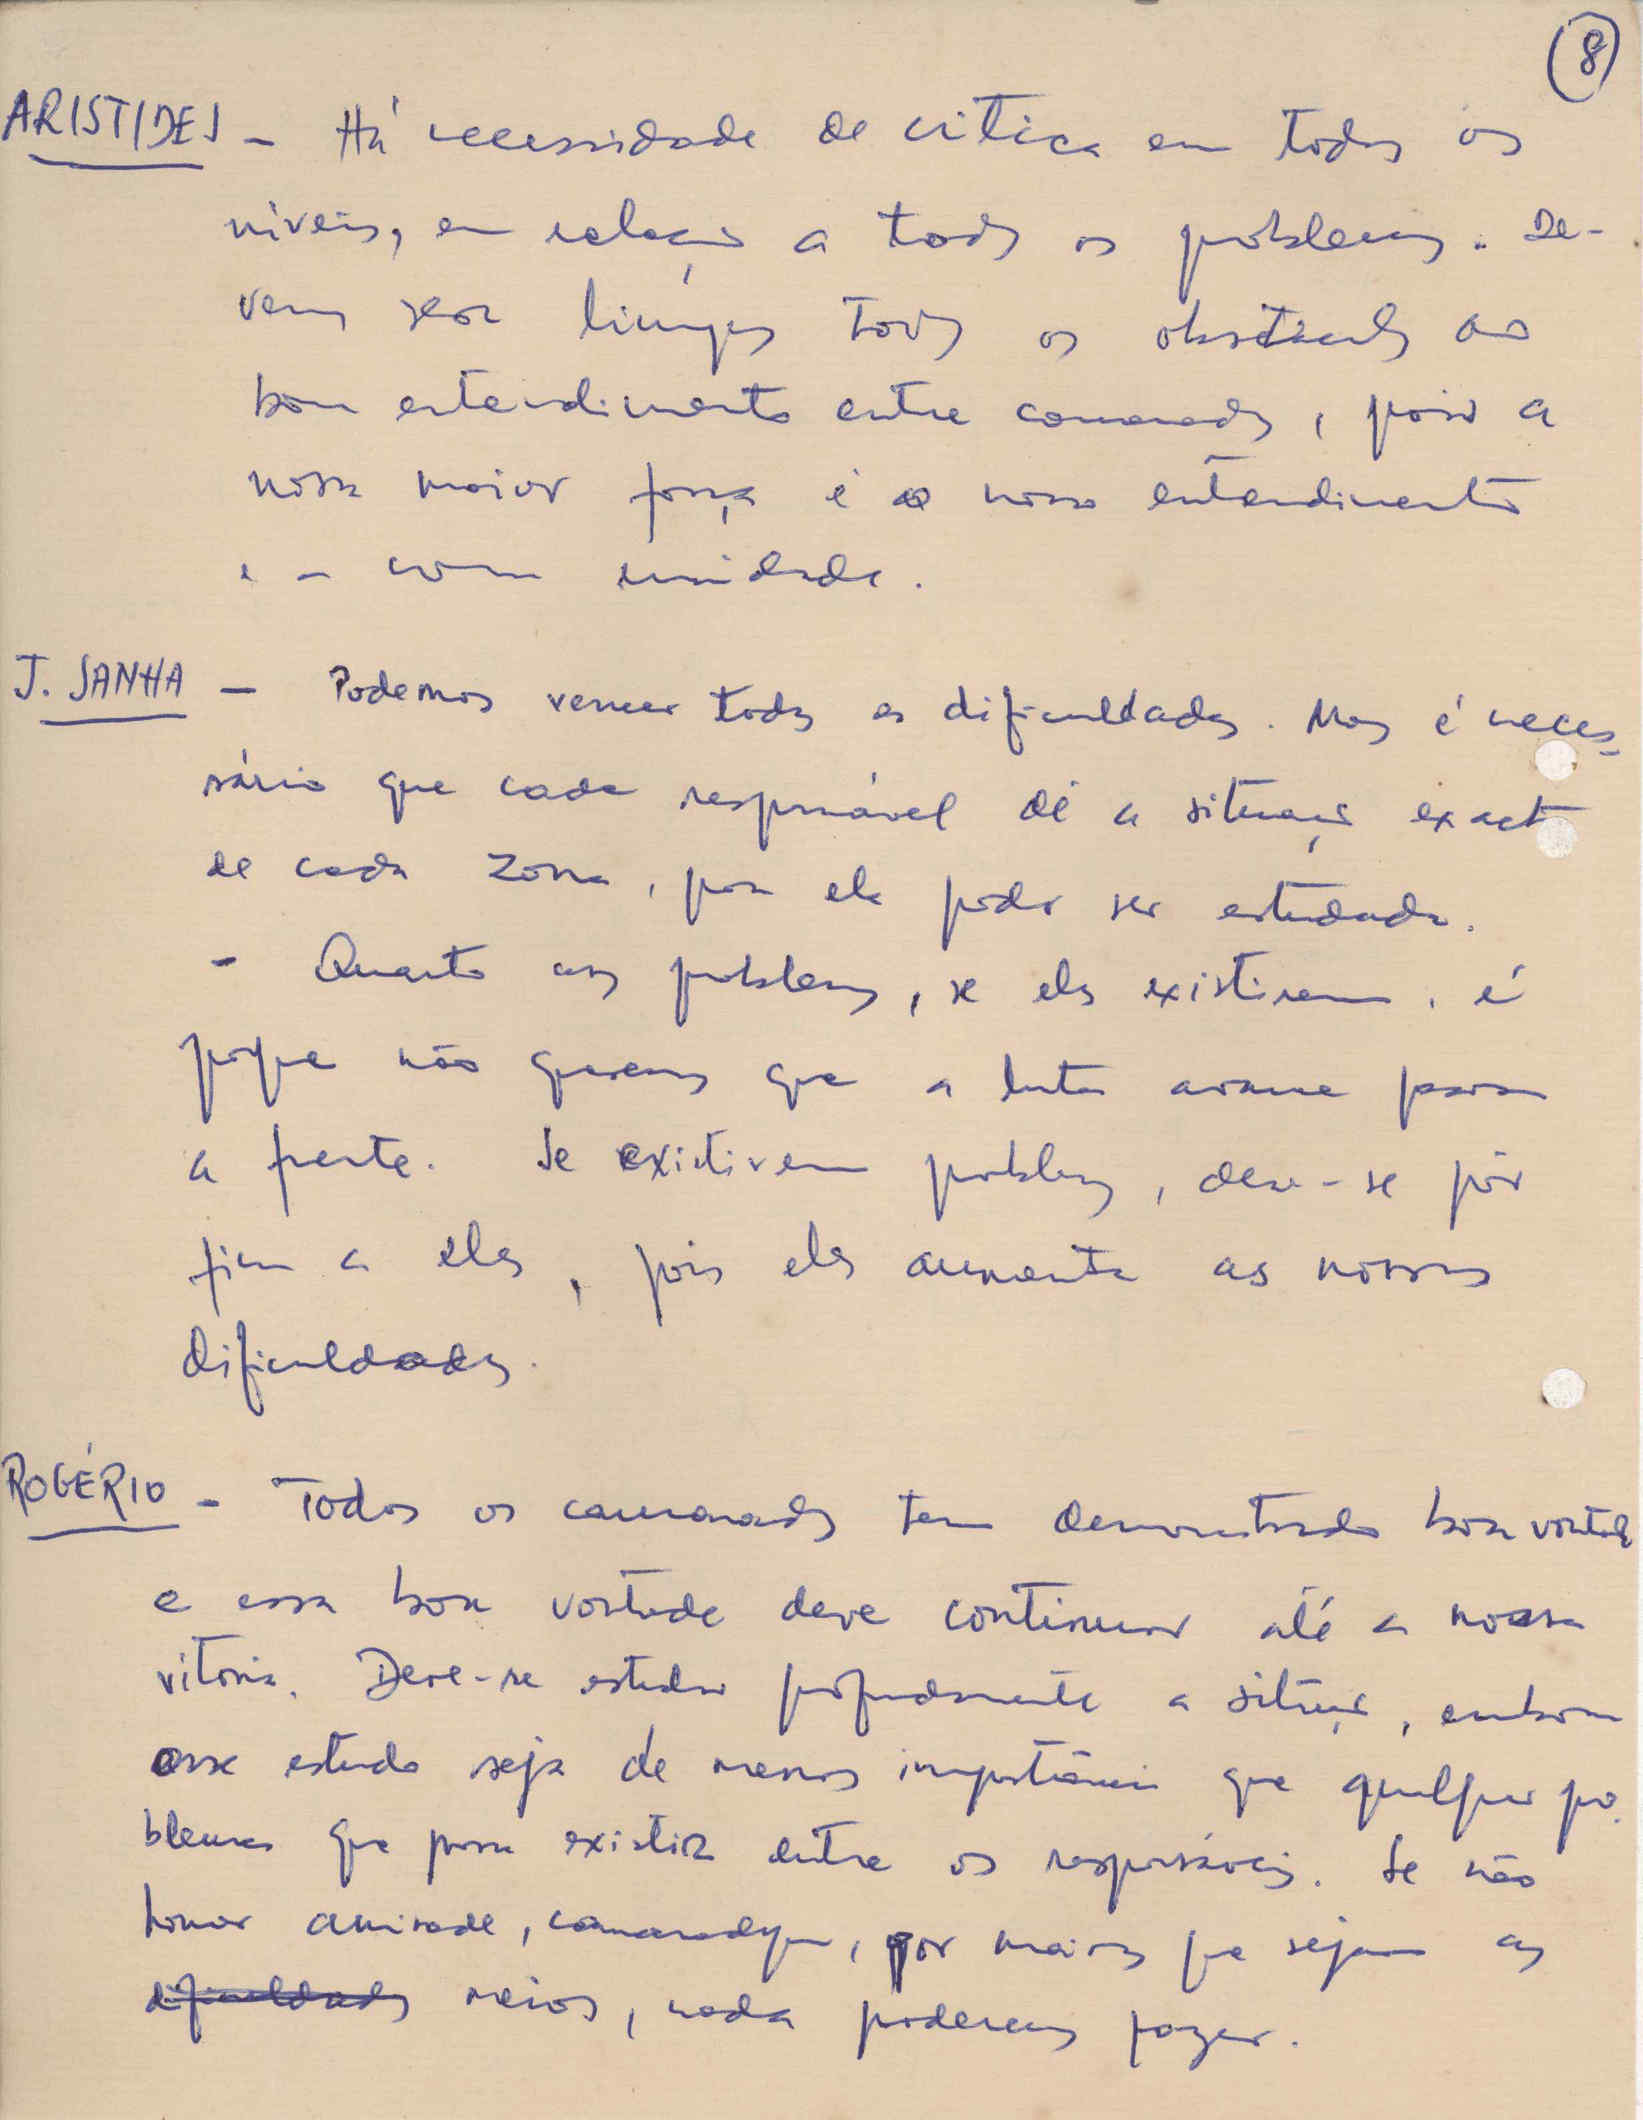 8
ARISTIDES - Há necessidade de crítica em todos os
níveis, em relação a todos os problemas. De-
vem ser limpos todos os obstáculos ao
bom entendimento entre camaradas, pois a
nossa maior força é o nosso entendimento
e a nossa unidade.
J. SANHA - Podemos vencer todas as dificuldades. Mas é neces-
sário que cada responsável dê a situação exacta
de cada zona, para ela poder ser estudada.
- Quanto aos problemas, se eles existirem, é
porque não queremos que a luta avance para
a frente. Se existirem problemas, deve-se pôr
fim a eles, pois eles aumenta as nossas
dificuldades.
ROGÉRIO - Todos os camaradas tem demonstrado boa vontade
e essa boa vontade deve continuar até a nossa
vitória. Deve-se estudar profundamente a situação, embora
esse estudo seja de menos importância que qualquer pro-
blema que possa existir entre os responsáveis. Se não
houver amizade, camaradagem, por maiores que sejam os
dificuldades meios, nada poderemos fazer.